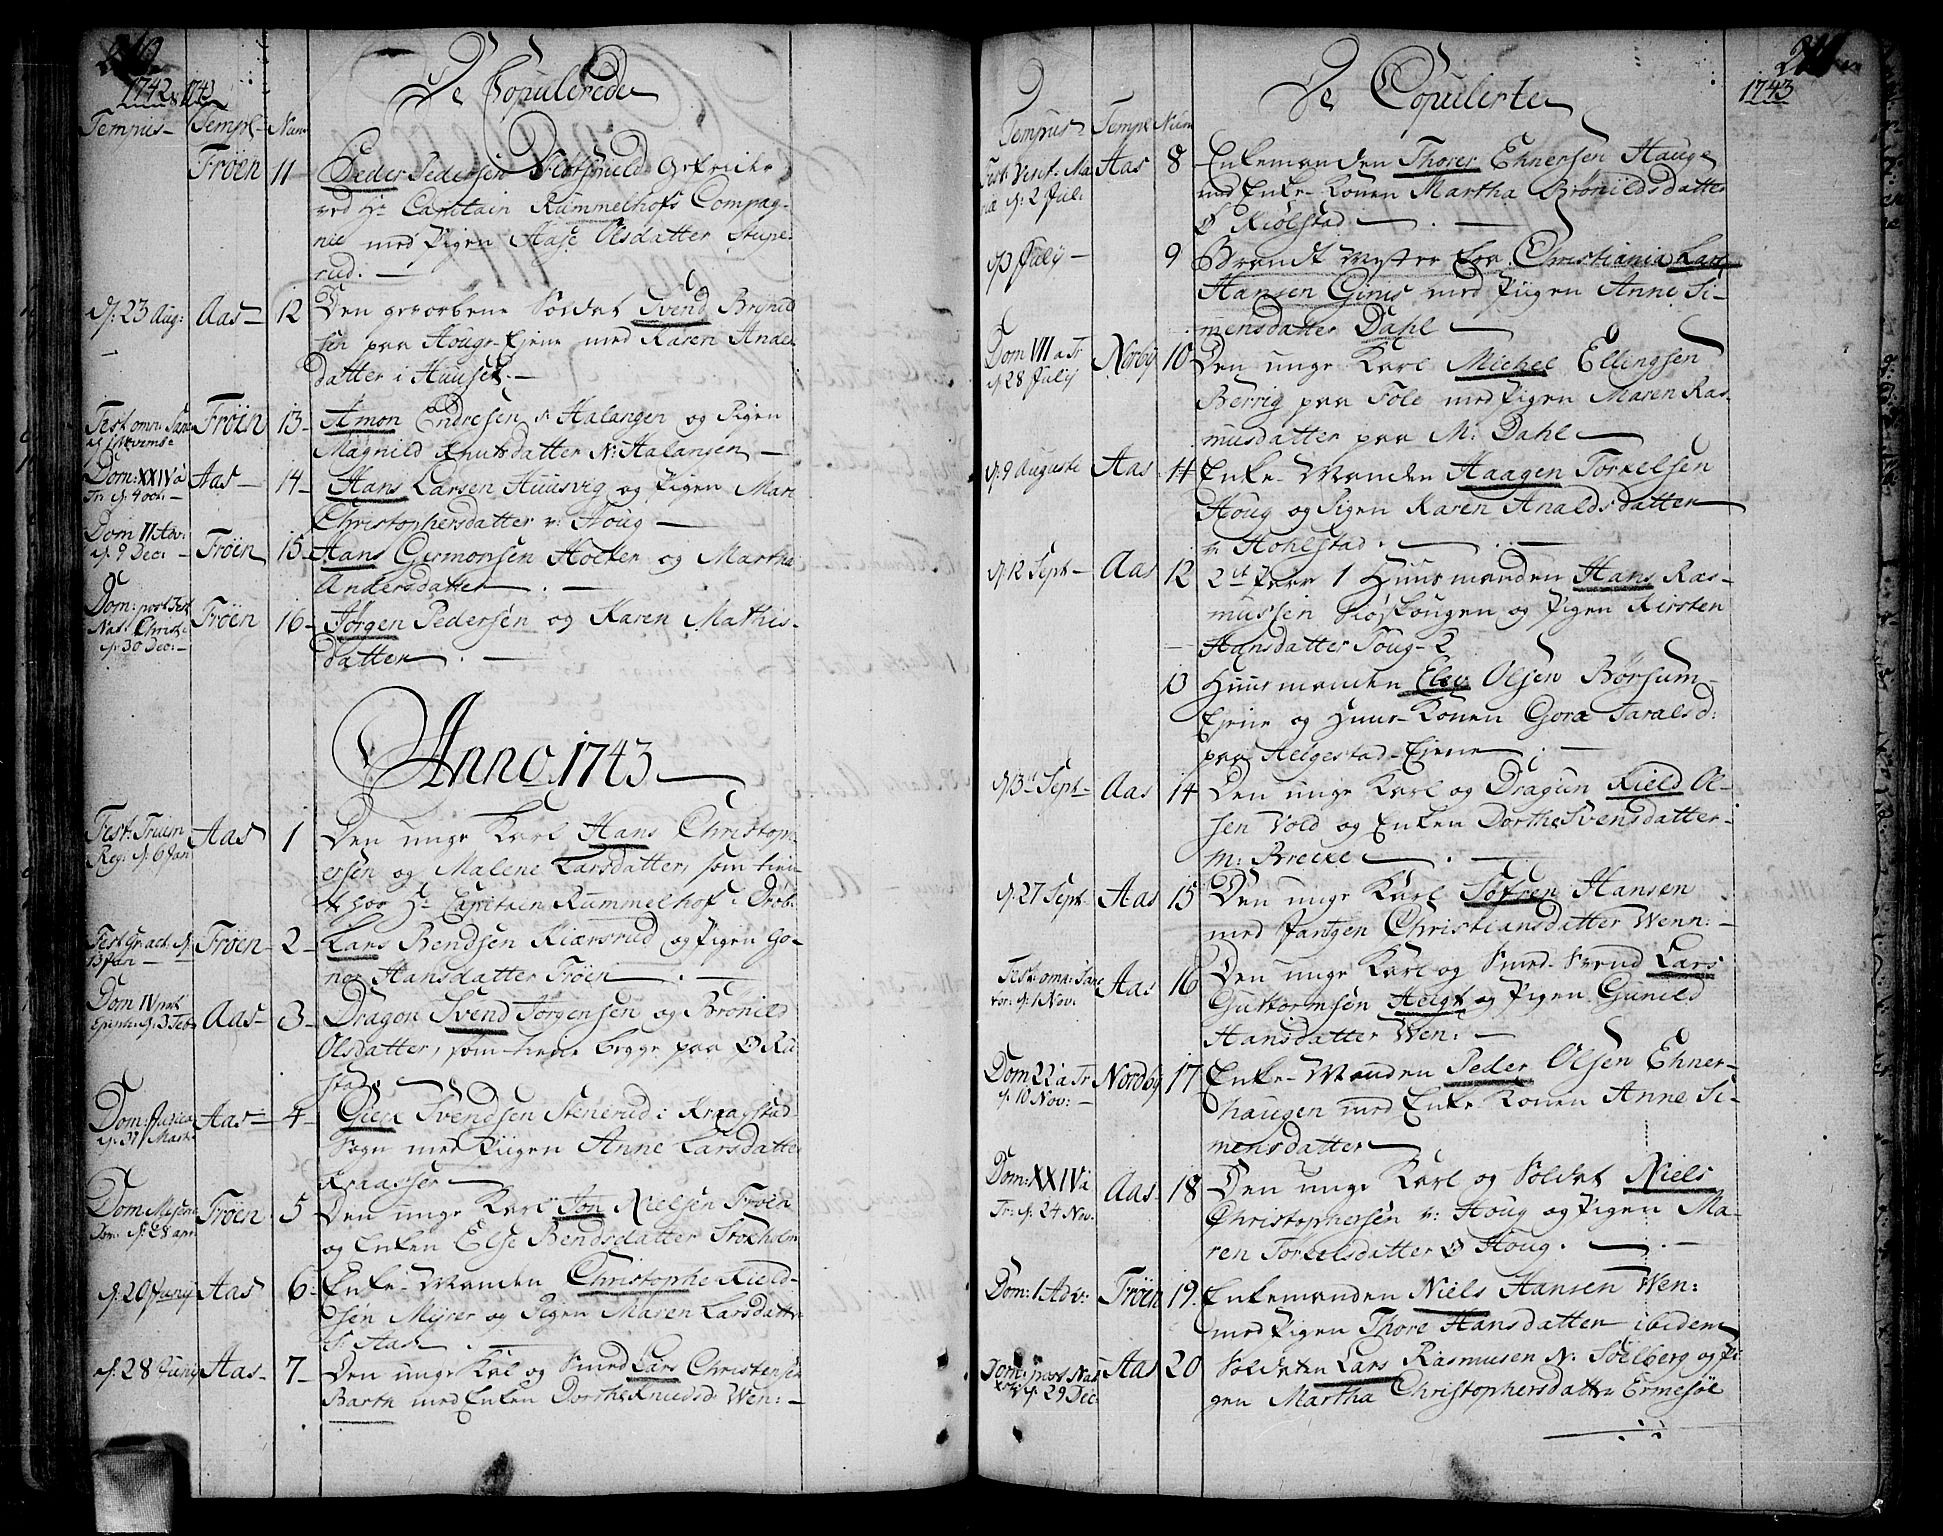 210
1742 & 1743
De Copulerede
Tempus Templ Num
Fröen 11 Peder Pedersen Refrieter
ved Hr Capitain Rummelhofs Compag-
nie med Pigen Aase Olsdatter Stupe-
rud. —
d: 23 Aug: Aas 12 Den gevorbene Soldat Svend Brynild
sen paa Houg-Ejene med Karen Anders
datter i Huuset. —
Fest omn: Sanct
Fröen 13 Amon Endresen S. Halangen og Pigen
Magnild Knutsdatter N: Halansen —
Dom: XXIV à
Tr Aas 14 Hans Larsen Huusvig og Pigen Mari
Christophersdatter v: Houg —
Dom II Adv:
d. 9 Dec: Fröen 15 Hans Germonsen Hocker og Martha
Andersdatter —
Dom: post Fest
Nat: Christi
d: 30 Dec: Fröen 16 Jörgen Pedersen og Karen Mathis-
datter —
Anno 1743
Fest: Trium
Reg: d. 6 Jan Aas 1 Den unge Karl Hans Christoph
ersen og Malene Larsdatter, som tien
t hoo Hr Capitain Rummelhof i Dröb:
Fest d.
13 Jan Fröen 2 Lars Bendsen Kiærsrud og Pigen Go-
nor Hansdatter Fröen —
Dom IV post
Epiph: d. 3 Feb Aas 3 Dragon Svend Jörgensen og Brönild
Olsdatter, som tiener begge paa Ø Ru
stad —
Dom: Judica
d. 31 Marti Aas 4 Svendsen Stenerud i Kraagstad
Sogn med Pigen Anne Larsdatter
Kraasser —
Dom Miseric
Dom: d: 28 apr Fröen 5 Den unge Karl Jon Nielsen Froen
og Enken Else Bendsdatter Stokholm
d: 20 Juny Aas 6 Enke-Manden Christophe Kield-
sen Myrer og Pigen Maren Larsdatter
S: Aas —
d: 28 Juny Aas 7 Den unge Kal og Smed Lars Christensen
Barth med Enken Dorthe Knudsd: Wen: —
211
1743
De Copulerte
Tempus Templ Num
Fest: Visit: Ma
riæ d: 2 Juli Aas 8 Enkemanden Thorer Ehnersen Hauge
med Enke-Konen Martha Brönildsdatter
Ø Kiölstad —
d 3 July 9 Brandt Myster fra Christiania Lars
Hansen med Pigen Anne Si-
mensdatter Dahl —
Dom VII a Tr
d 28 July Norby 10 Den unge Karl Michel Ellingsen
Berrig paa Fole med Pigen Maren Ras-
musdatter paa M: Dahl —
d: 9 Auguste Aas 11 Enke-Manden Haagen Torkelsen
Houg og Pigen Karen Analdsdatter
v: Hohlstad. —
d: 12 Sept Aas 12 2de Parr 1 Huusmanden Hans Ras-
mussen Kiöskougen og Pigen Kirsten
Hansdatter Toug-2
13 Huusmanden Elev Olsen Börsum-
Ejene og Huus-Konen Gora Taralsd:
paa Helgestad-Ejene. —
d 13 Sept Aas 14 Den unge Karl og Dragun Kield Ol-
sen Vold og Enken Dorthe Svensdatter
M: Brecke —
d: 27 Sept Aas 15 Den unge Karl Söfren Hansen
med Jantgen Christiansdatter Wenn: —
Fest: omn: Sanc
tor: d: 1 Nov: Aas 16 Den unge Karl og Smed-Svend Lars
Guttormsen Helgt og Pigen Gunild
Hansdatter Wen: —
Dom 22 à Tr
d 10 Nov: Nordby 17 Enke-Manden Peder Olsen Ehner-
haugen med Enke Konen Anne Si-
mensdatter —
Dom: XXIV à
Tr: d: 24 Nov. Aas 18 Den unge Karl og Soldat Niels
Christophersen v: Houg og Pigen Ma-
ren Torkelsdatter Ø Houg. —
Dom: 1 Adv: Fröen 19. Enkemanden Niels Hansen Wen:
med Pigen Thore Hansdatter ibidem
Dom: post Nat
d: 29 Dec: Aas 20 Soldaten Lars Rasmusen N: Sölberg og Pi
gen Martha Christophersdatter Ermesöe